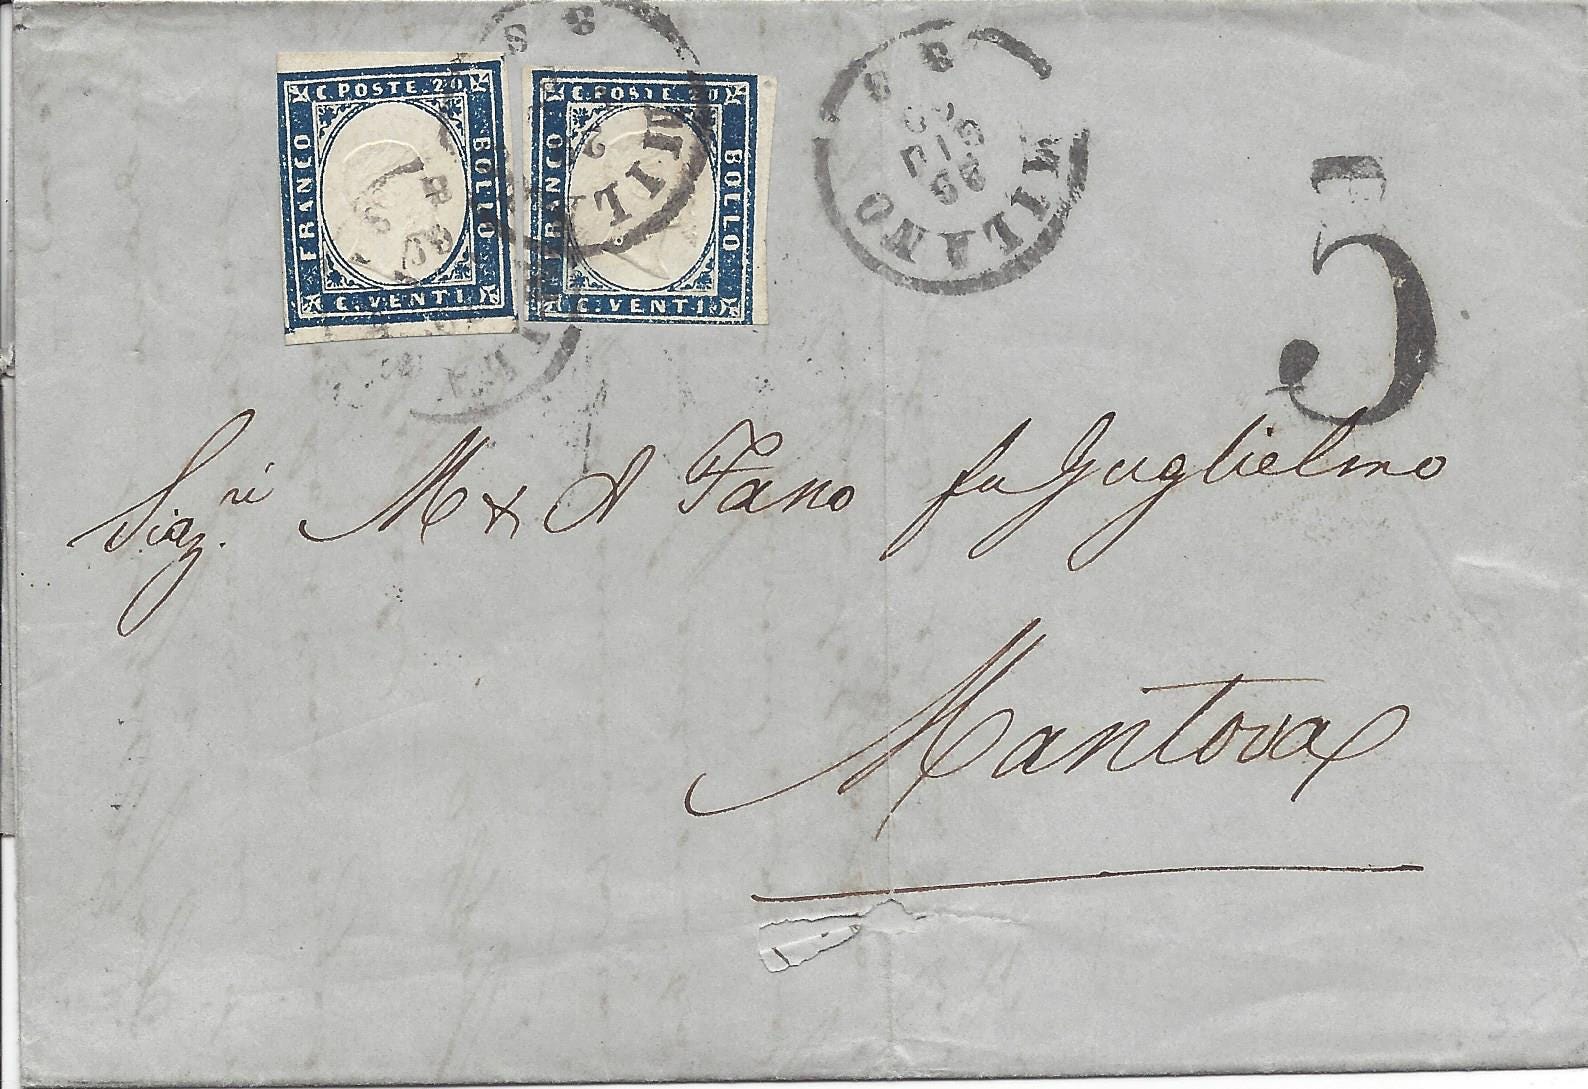 C. POSTE. 20
FRANCO
BOLLO
C. VENTI
C. POSTE. 20
FRANCO
BOLLO
C. VENTI
MIL
MILANO
29
GIU
60
8 S
5
Sig.ri M & A Fano fu Guglielmo
Mantova